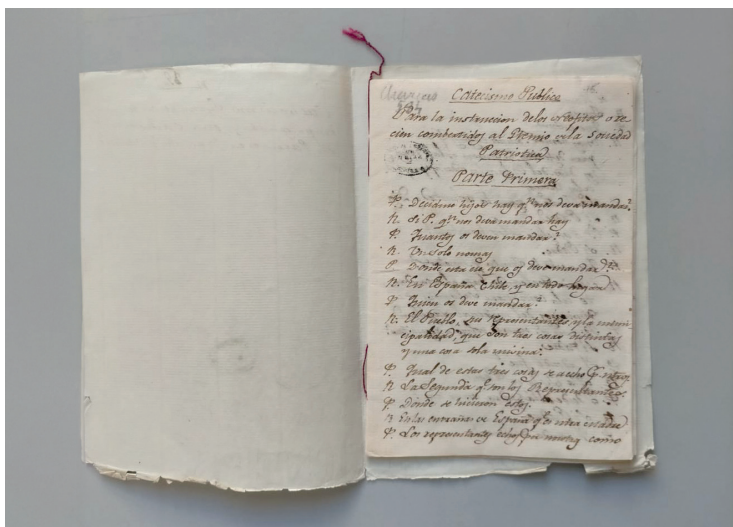 Catecismo Publico
Para la instruccion delos neofitos o re-
cien combertidos al Gremio de la Sociedad
Patriotica
Parte Primera
P. Decidme hijos hay qn. nos deva mandar?
R. Si P. qn. nos deva mandar hay
P. Quantos os deven mandar?
R. Un solo nomas
P. Donde esta ese que os deve mandar?
R. En España, Chile, y en todo lugar
P. Quien os deve mandar?
R. El Pueblo, sus representantes, y la munici-
cipalidad, que son tres cosas distintas
y una cosa sola misma.
P. Qual de estas tres cosas se a echo
R. La Segunda q. son los Representantes.
P. Donde se hicieron estos.
R. En las entrañas de España
P. Los representantes echos como